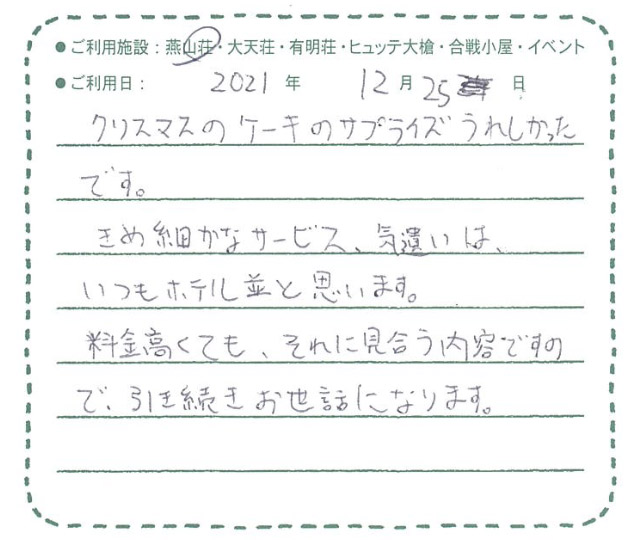 ●ご利用施設：燕山荘・大天荘・有明荘・ヒュッテ大槍・合戦小屋・イベント
●ご利用日： 2021 年 12 月 25 日
クリスマスのケーキのサプライズうれしかった
です。
きめ細かなサービス、気遣いは、
いつもホテル並と思います。
料金高くても、それに見合う内容ですの
で、引き続きお世話になります。